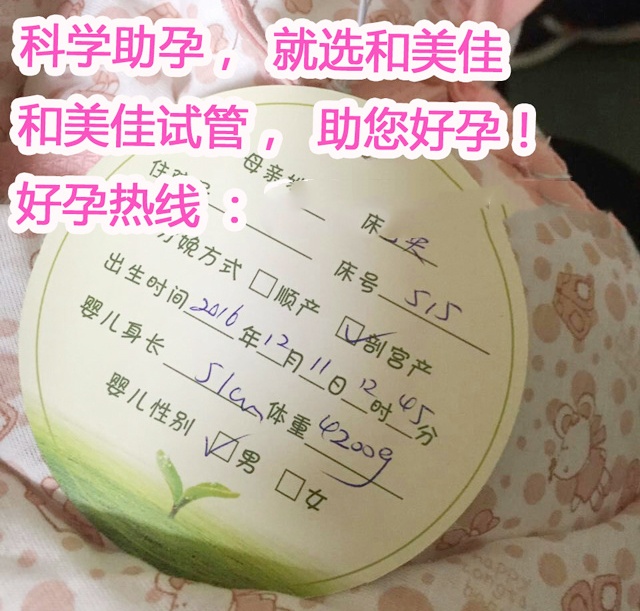 科学助孕， 就选和美佳
和美佳试管， 助您好孕！
好孕热线 ：
母亲姓
床
床号 515
分娩方式 □顺产 ☑剖宫产
出生时间 2016 年 12 月 11 日 12 时 45 分
婴儿身长 51cm 体重 4200g
婴儿性别 ☑男 □女